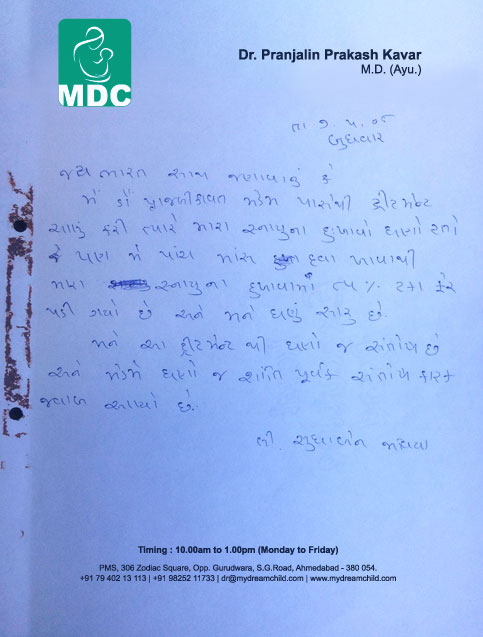 MDC
Dr. Pranjalin Prakash Kavar
M.D. (Ayu.)
તા ૭.૫.૦૮
બુધવાર
જય ભારત સાથ જણાવાનું કે
મેં ડૉ મેડમ પાસેથી ટ્રીટમેન્ટ
ચાલુ કરી ત્યારે મારા સ્નાયુના દુઃખાવો ઘણો હતો
જે પણ મેં પાંચ માસ દવા ખાવાથી
મારા સ્નાયુના દુખાવામાં ૮૫% ટકા ફેર
પડી ગયો છે અને મને ઘણું સારુ છે.
મને આ ટ્રીટમેન્ટ થી ઘણો જ સંતોષ છે
અને મેડમે ઘણો જ શાંતિ પૂર્વક સંતોષ કારક
જવાબ આપ્યો છે.
લી.
Timing : 10.00am to 1.00pm (Monday to Friday)
PMS, 306 Zodiac Square, Opp. Gurudwara, S.G.Road, Ahmedabad - 380 054.
+91 79 402 13 113 | +91 98252 11733 | dr@mydreamchild.com | www.mydreamchild.com